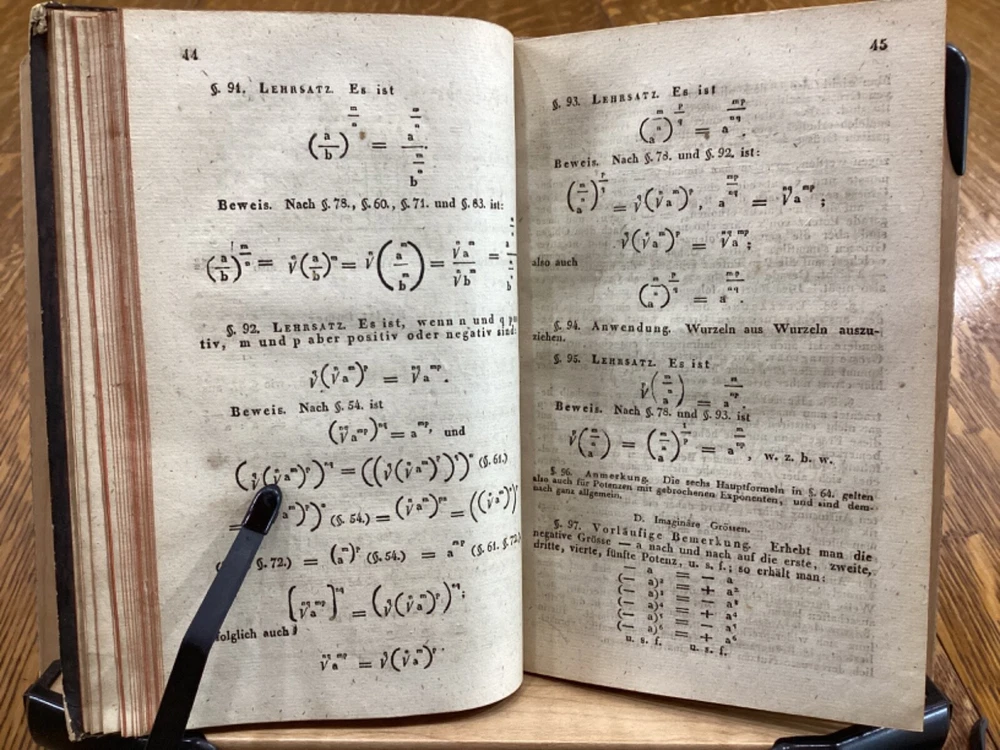 44
§. 91. LEHRSATZ. Es ist
(a/b)^(m/n) = a^(m/n) / b^(m/n).
Beweis. Nach §. 78., §. 60., §. 71. und §. 83. ist:
(a/b)^(m/n) = ⁿ√(a/b)^m = ⁿ√(a^m/b^m) = ⁿ√a^m / ⁿ√b^m =
§. 92. LEHRSATZ. Es ist, wenn n und q
tiv, m und p aber positiv oder negativ sind:
^q√(ⁿ√a^m)^p = ^nq√a^mp.
Beweis. Nach §. 54. ist
(^nq√a^mp)^nq = a^mp, und
(^q√(ⁿ√a^m)^p)^nq = ((^q√(ⁿ√a^m)^p)^q)^n (§. 61.)
a^m)^p)^n (§. 54.) = (ⁿ√a^m)^pn = ((ⁿ√a^m)^n)^p
§. 72.) = (a^m)^p (§. 54.) = a^mp (§. 61. §. 72.
(^nq√a^mp)^nq = (^q√(ⁿ√a^m)^p)^nq;
folglich auch
^nq√a^mp = ^q√(ⁿ√a^m)^p.
45
§. 93. LEHRSATZ. Es ist
(a^(m/n))^(p/q) = a^(mp/nq).
Beweis. Nach §. 78. und §. 92. ist:
(a^(m/n))^(p/q) = ^q√(ⁿ√a^m)^p, a^(mp/nq) = ^nq√a^mp;
^q√(ⁿ√a^m)^p = ^nq√a^mp;
also auch
(a^(m/n))^(p/q) = a^(mp/nq).
§. 94. Anwendung. Wurzeln aus Wurzeln auszu-
ziehen.
§. 95. LEHRSATZ. Es ist
^p√(a^(m/n)) = a^(m/np).
Beweis. Nach §. 78. und §. 93. ist
^p√(a^(m/n)) = (a^(m/n))^(1/p) = a^(m/np), w. z. b. w.
§. 96. Anmerkung. Die sechs Hauptformeln in §. 64. gelten
also auch für Potenzen mit gebrochenen Exponenten, und sind dem-
nach ganz allgemein.
D. Imaginäre Grössen.
§. 97. Vorläufige Bemerkung. Erhebt man die
negative Grösse — a nach und nach auf die erste, zweite,
dritte, vierte, fünfte Potenz, u. s. f.; so erhält man:
— a = — a
(— a)² = + a²
(— a)³ = — a³
(— a)⁴ = + a⁴
(— a)⁵ = — a⁵
(— a)⁶ = + a⁶
u. s. f. u. s. f.